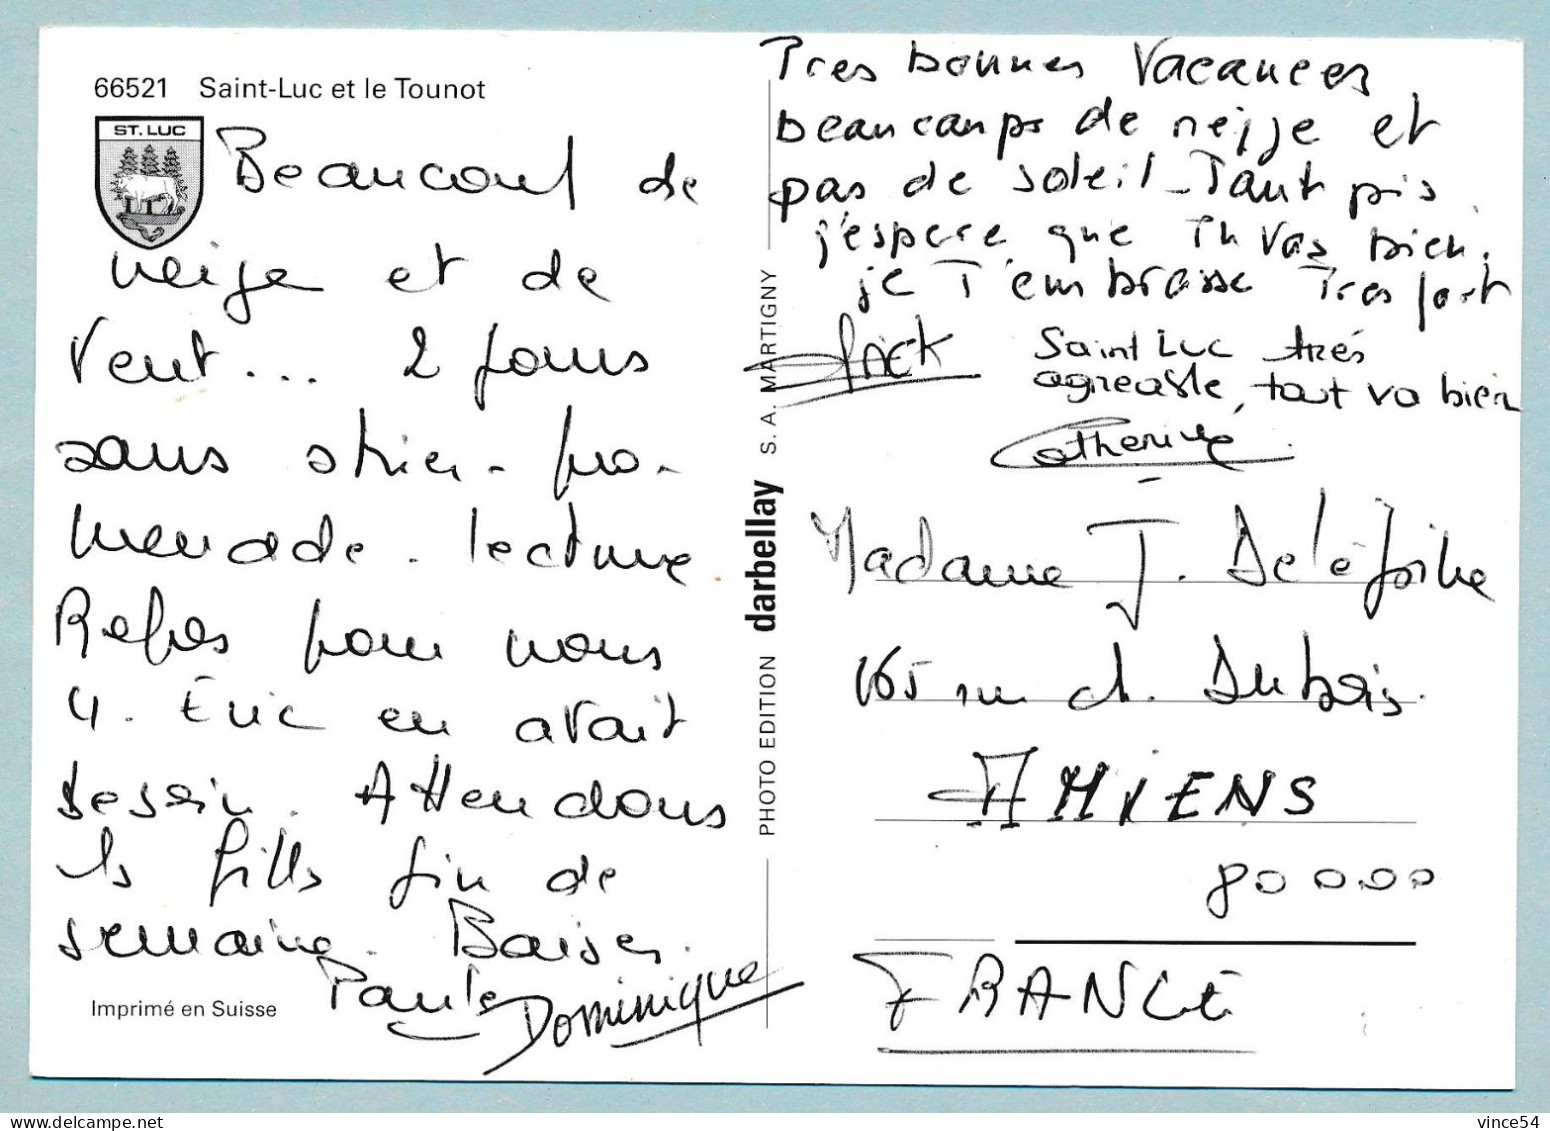 66521 Saint-Luc et le Tounot
ST. LUC
Beaucoup de
neige et de
Vent... 2 jours
sans skier - pro-
menade. lecture.
Repos pour nous
4. Eric en avait
besoin. Attendons
ls filles fin de
semaine. Baisers.
Paule
Dominique
Imprimé en Suisse
PHOTO EDITION darbellay S. A. MARTIGNY
Tres bonnes Vacances
beaucoups de neige et
pas de soleil - Tant pis.
j'espere que Tu vas bien.
je T'embrasse Tres fort
Saint Luc très
agréable, tout va bien
Catherine
Madame J.
165 rue ch. Dubois.
AMIENS
80 000
FRANCE
vince54